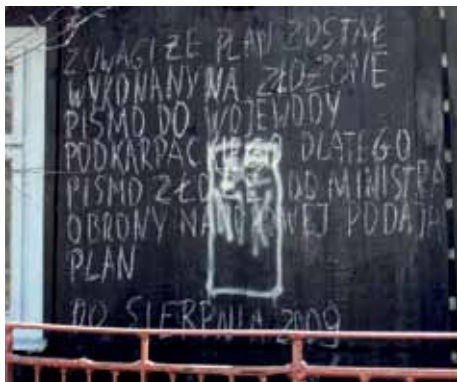 Z UWAGI ŻE PLAN ZOSTAŁ
WYKONANY NA ZŁOŻONE
PISMO DO WOJEWODY
PODKARPAC DLATEGO
PISMO DO MINISTRA
OBRONY PODAJĄ
PLAN
DO SIERPNIA 2009